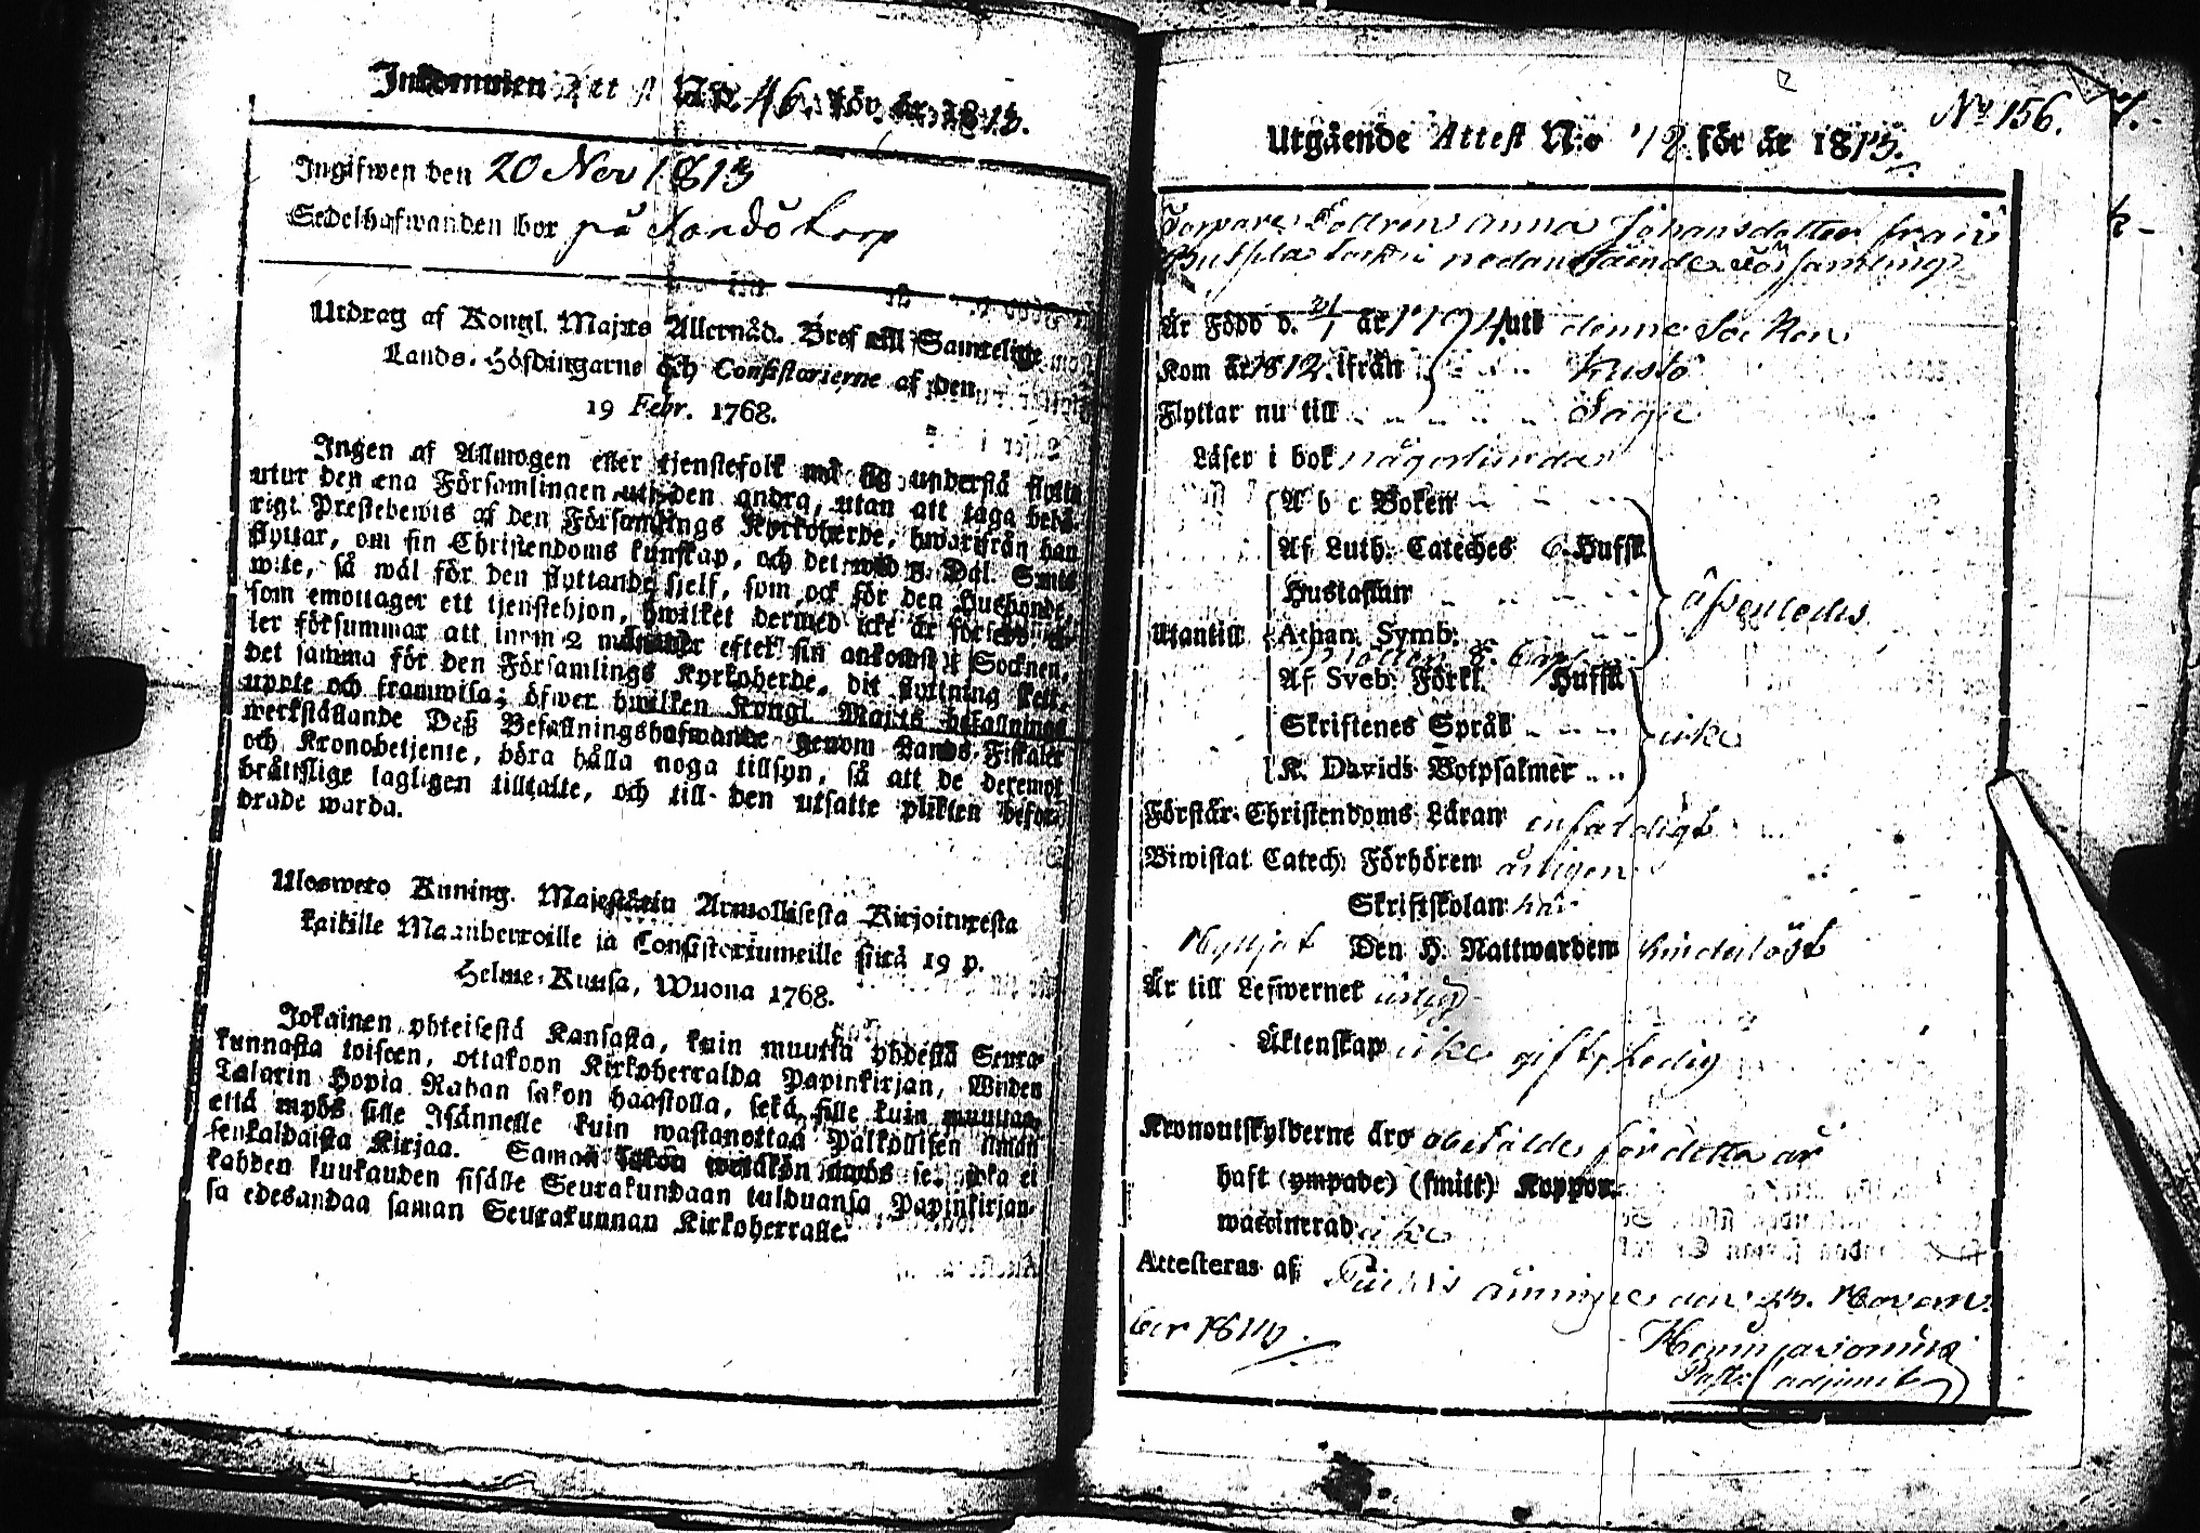 Inkommen Attest N:o 46. för år 1813.
Ingifwen den 20 Nov 1813
Sedelhafwanden bor på Sandö torp
Utdrag af Kongl. Maj:ts Allernåd. Bref till Samtelige
Lands-Höfdingarne och Consistorierne af den
19 Febr. 1768.
Ingen af Allmogen eller tjenstefolk må sig understå flytta
utur den ena Församlingen uti den andra, utan att taga behö-
rigt Prestebewis af den Församlings Kyrkoherde, hwarifrån han
flyttar, om sin Christendoms kunskap, och det wid 5 Dal. S:mts
wite, så wäl för den flyttande sjelf, som ock för den Husbonde,
som emottager ett tjenstehjon, hwilket dermed icke är försedt el-
ler försummar att inom 2 månader efter sin ankomst i Socknen,
det samma för den Församlings Kyrkoherde, dit flyttning skett,
uppte och framwisa; öfwer hwilken Kongl. Maj:ts befallnings
werkställande Deß Befallningshafwande genom Lands-Fiskaler
och Kronobetjente, böra hålla noga tillsyn, så att de deremot
bråttslige lagligen tilltalte, och till den utsatte plikten befor-
drade warda.
Ulosweto Kuning. Majestätin Armollisesta Kirjoituxesta
kaikille Maanherroille ja Consistoriumeille siitä 19 p.
Helme-Kuusa, Wuona 1768.
Jokainen yhteisestä Kansasta, kuin muutta yhdestä Seura-
kunnasta toiseen, ottakoon Kirkoherralda Papinkirjan, Wiiden
Talarin Hopia Rahan sakon haastolla, sekä sille kuin muuttaa,
että myös sille Isännelle kuin wastanottaa Palkollisen ilman
senkaldaista Kirjaa. Saman sakon wetäkön myös se joka ei
kahden kuukauden sisälle Seurakundaan tulduansa Papinkirjan-
sa edesandaa saman Seurakunnan Kirkoherralle.
No 156.
Utgående Attest N:o 12. för år 1813.
Torpare Dottren Anna Johansdotter från
nedanstående Församling
Är Född d. 21/1 år 1794 uti denne Socken
Kom år 1812 ifrån Kustö
Flyttar nu till Sagu
Läser i bok någorlunda
A b c Boken
Af Luth. Cateches 6. Hufst.
Hustaflan
Utantill Athan. Symb. åsyeledes
Af Sveb. Förkl. Hufst.
Skriftenes Språk icke
K. Davids Botpsalmer
Förstår Christendoms Läran enfaldigt
Biwistat Catech. Förhören årligen
Skriftskolan
Nyttjat Den H. Nattwarden hinderlöst
Är till Lefwernet ärlig
Äktenskap icke gift, ledig
Kronoutskylderne äro obetalde för detta år
haft (ympade) (smitt) Koppor
waccinerad icke
Attesteras af den 23. Novem-
ber 1813.
Past: adjunct